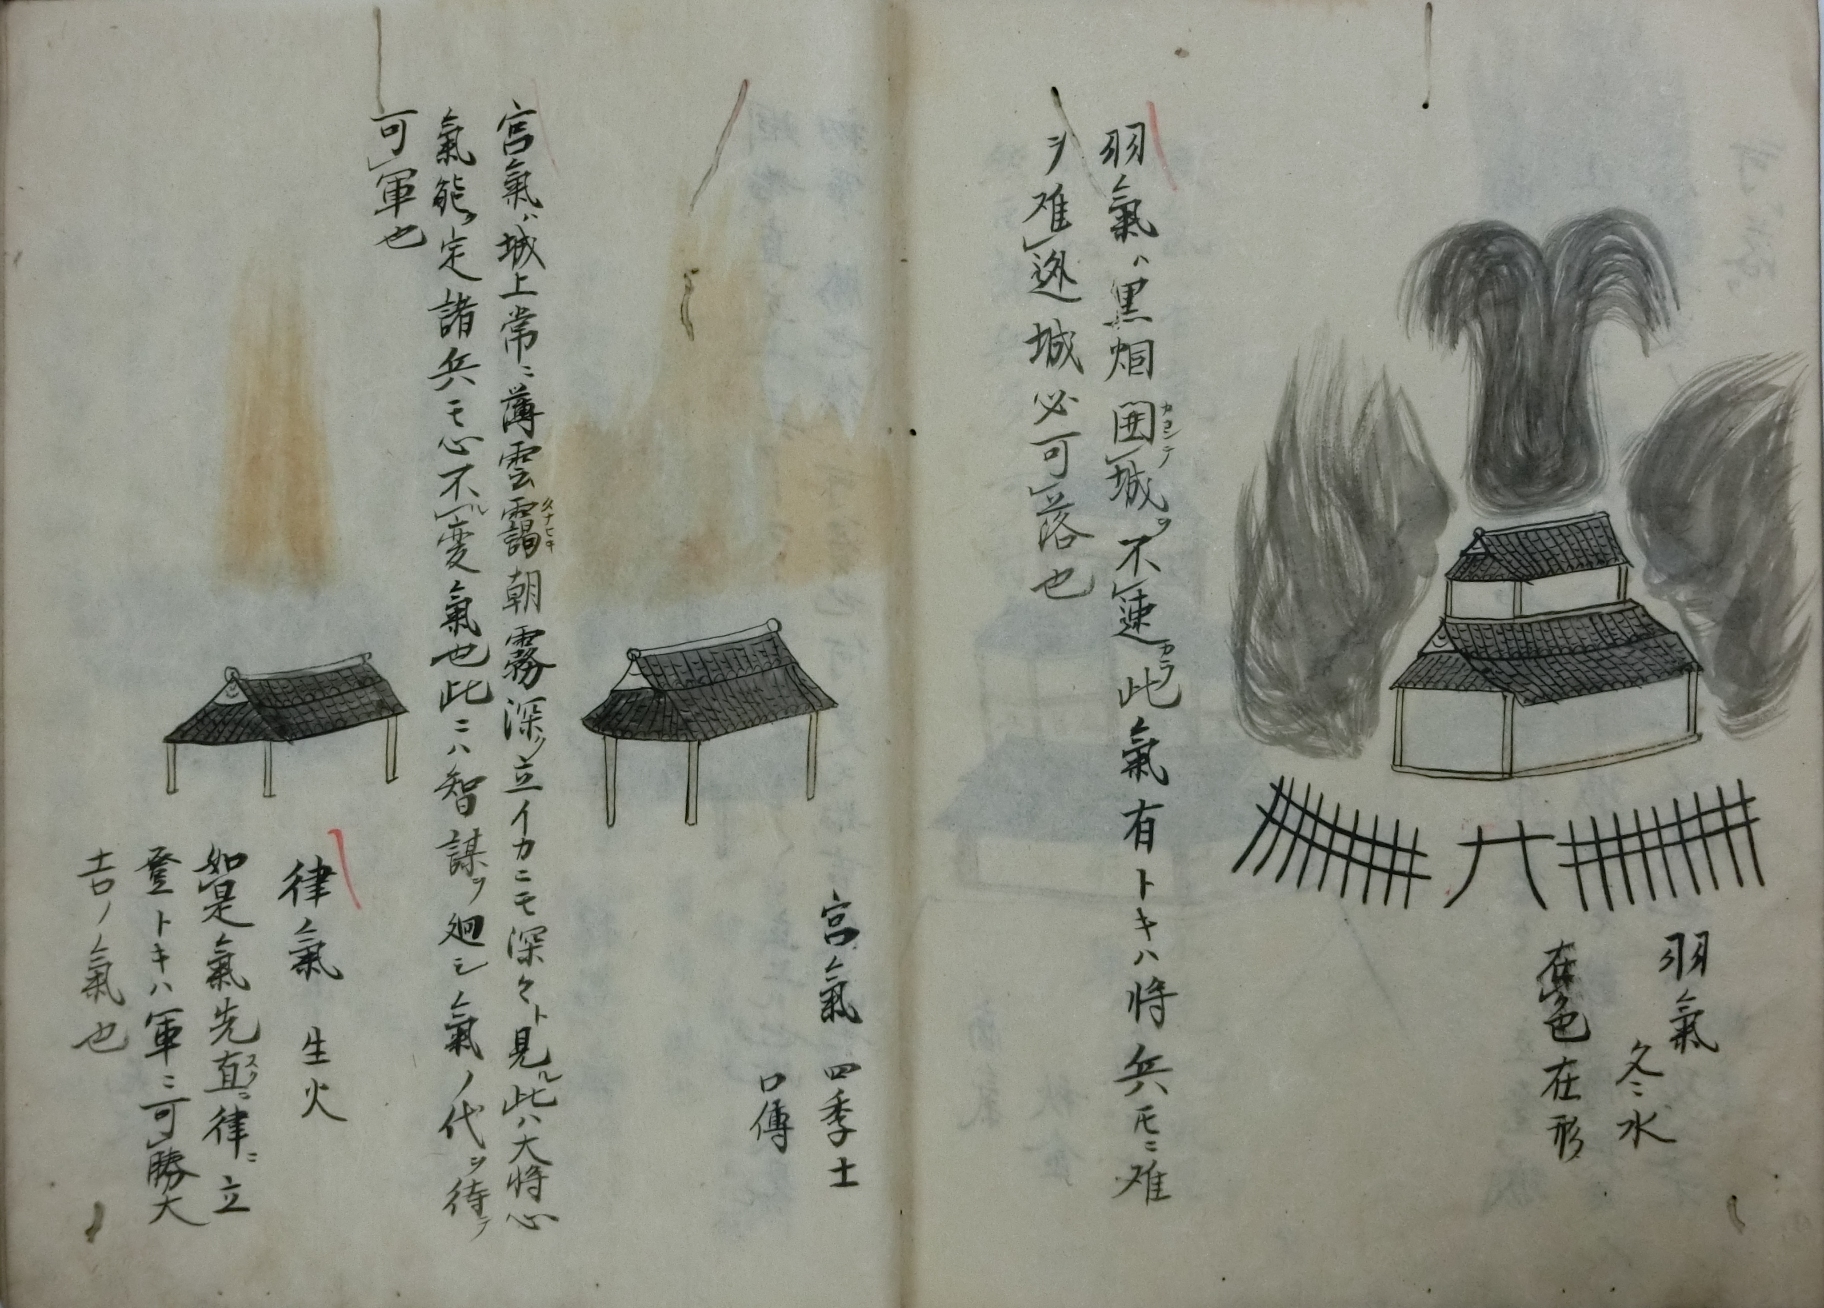 羽氣
冬ニ水
在色在形
羽氣ハ黒烟囲城ヲ不蓮此氣有トキハ将兵モニ难
カコンテ
カラ
ヲ难迯城必可落也
宮氣 四季土
口傳
宮氣ハ城上常ニ薄雲靄朝霧深ク立イカニモ深々ト見ル此ハ大将心
タナヒキ
氣能ク定諸兵モ心不ル変氣也此ニハ智謀ヲ廻シ氣ノ代ヲ待テ
可軍也
律ノ氣 生火
如是氣先直ニ律ニ立
スク
登トキハ軍ニ可勝大
吉ノ氣也